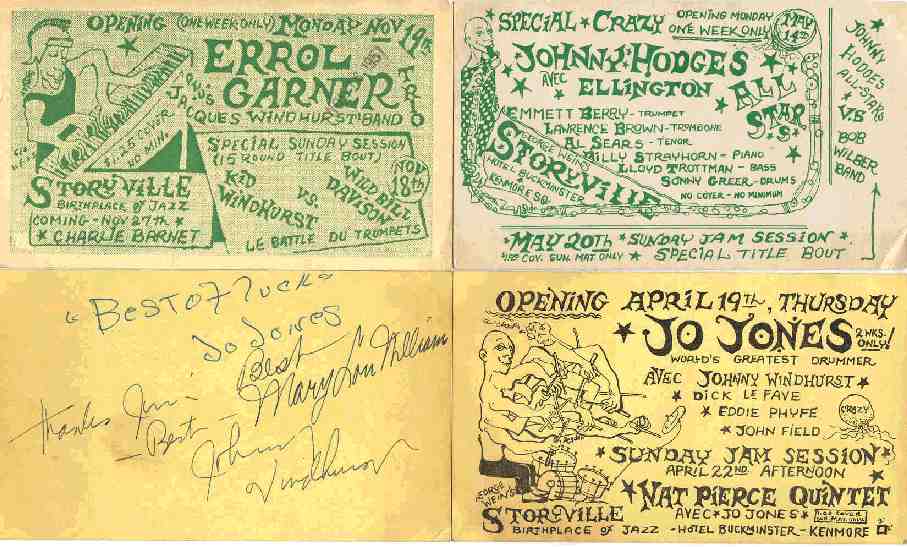 OPENING (ONE WEEK ONLY) MONDAY NOV 19TH
ERROL
GARNER
TRIO
PLUS JACQUES WINDHURST' BAND
$1.25 COVER
NO MIN.
SPECIAL SUNDAY SESSION
(15 ROUND TITLE BOUT)
NOV
18TH
KID
WINDHURST
VS.
WILD BILL
DAVISON
LE BATTLE DU TRUMPETS
STORYVILLE
BIRTHPLACE OF JAZZ
COMING - NOV 27TH
CHARLIE BARNET
SPECIAL CRAZY
OPENING MONDAY
ONE WEEK ONLY
MAY
14TH
JOHNNY HODGES
AVEC ELLINGTON
ALL
STARS
EMMETT BERRY - TRUMPET
LAWRENCE BROWN - TROMBONE
AL SEARS - TENOR
BILLY STRAYHORN - PIANO
LLOYD TROTTMAN - BASS
SONNY GREER - DRUMS
NO COVER - NO MINIMUM
GEORGE WEIN'S
STORYVILLE
HOTEL BUCKMINSTER
KENMORE SQ.
JOHNNY
HODGES
AL-STARS
VS
BOB
WILBER
BAND
MAY 20TH SUNDAY JAM SESSION
COV. SUN. MAT ONLY SPECIAL TITLE BOUT
"BEST OF LUCK"
JO JONES
Best
Mary Lou Williams
Thanks Jim -
- Best -
Johnny
Windhurst
OPENING APRIL 19TH, THURSDAY
JO JONES
2 WKS.
ONLY!
WORLD'S GREATEST DRUMMER
AVEC JOHNNY WINDHURST
DICK LE FAVE
EDDIE PHYFE
JOHN FIELD
CRAZY
SUNDAY JAM SESSION
APRIL 22ND AFTERNOON
NAT PIERCE QUINTET
AVEC JO JONES
GEORGE WEIN'S
STORYVILLE
BIRTHPLACE OF JAZZ - HOTEL BUCKMINSTER - KENMORE